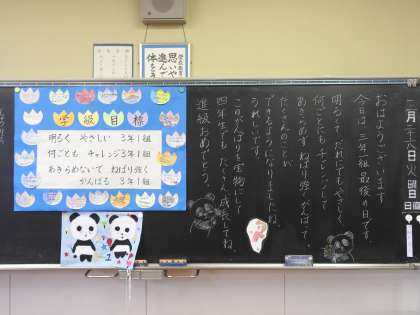 思いや
進んで
体を
学級目標
明るく やさしい 3年1組
何ごとも チャレンジ 3年1組
あきらめないで ねばり強く
がんばる 3年1組
三月二十八日火曜日
日直
おはようございます
今日は、三年一組最後の日です。
明るくて だれにでもやさしく、
何ごとにもチャレンジして
あきらめず ねばり強く がんばって、
たくさんのことが
できるようになりましたね。
うれしいです。
このがんばりを宝物にして
四年生でも、たくさん成長してね。
進級おめでとう。